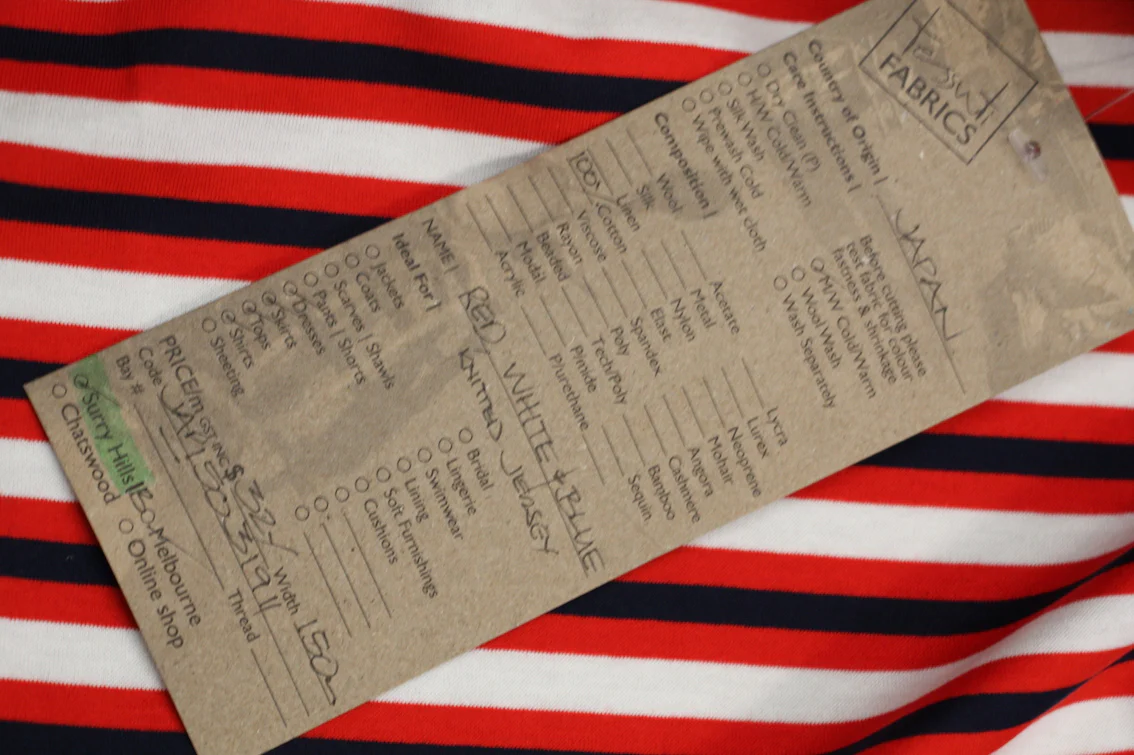 Tessuti
FABRICS
Country of Origin | JAPAN
Care Instructions |
Dry Clean (P)
H/W Cold/Warm
Silk Wash
Prewash Cold
Wipe with wet cloth
Before cutting please
test fabric for colour
fastness & shrinkage
M/W Cold/Warm
Wool Wash
Wash Separately
Composition |
Wool
Silk
Linen
100% Cotton
Viscose
Rayon
Beaded
Modal
Acrylic
Acetate
Metal
Nylon
Elast
Spandex
Poly
Tech/Poly
P/mide
P/urethane
Lycra
Lurex
Neoprene
Mohair
Angora
Cashmere
Bamboo
Sequin
NAME | RED, WHITE & BLUE
KNITTED JERSEY
Ideal For |
Jackets
Coats
Scarves | Shawls
Pants | Shorts
Dresses
Skirts
Tops
Shirts
Sheeting
Bridal
Lingerie
Swimwear
Lining
Soft Furnishings
Cushions
PRICE/m GST INC $ 32-/ Width 150
Code
Bay #
Thread
Surry Hills
Melbourne
Chatswood
Online shop